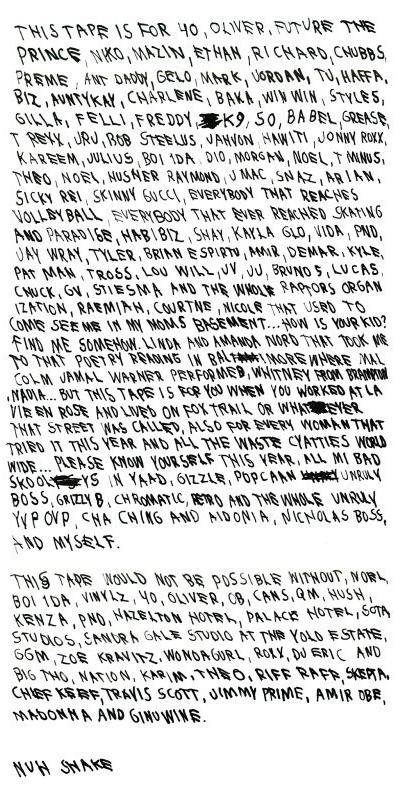 THIS TAPE IS FOR 40, OLIVER, FUTURE THE
PRINCE, NIKO, MAZIN, ETHAN, RICHARD, CHUBBS,
PREME, ANT DADDY, GELO, MARK, JORDAN, TJ, HAFFA,
BIZ, AUNTYKAY, CHARLENE, BAKA, WIN WIN, STYLES,
GILLA, FELLI, FREDDY, K9, SO, BABEL, GREASE,
T REXX, JRU, ROB STEELUS, JAHVON, HAWITI, JONNY ROXX,
KAREEM, JULIUS, BOI 1DA, DIO, MORGAN, NOEL, T MINUS,
THEO, NOEL, HUSHER RAYMOND, J MAC, SNAZ, ARIAN,
SICKY REI, SKINNY GUCCI, EVERYBODY THAT REACHES
VOLLEYBALL, EVERYBODY THAT EVER REACHED SKATING
AND PARADISE, HABIBIZ, SHAY, KAYLA GLO, VIDA, PND,
JAY WRAY, TYLER, BRIAN ESPIRTU, AMIR, DEMAR, KYLE,
PAT MAN, TROSS, LOU WILL, JV, JU, BRUNO S, LUCAS,
CHUCK, GV, STIESMA AND THE WHOLE RAPTORS ORGAN
IZATION, RAEMIAH, COURTNE, NICOLE THAT USED TO
COME SEE ME IN MY MOMS BASEMENT... HOW IS YOUR KID?
FIND ME SOMEHOW. LINDA AND AMANDA NORD THAT TOOK ME
TO THAT POETRY READING IN BALTIMORE WHERE MAL
COLM JAMAL WARNER PERFORMED, WHITNEY FROM BRAMPTON
,NADIA... BUT THIS TAPE IS FOR YOU WHEN YOU WORKED AT LA
VIE EN ROSE AND LIVED ON FOX TRAIL OR WHATEVER
THAT STREET WAS CALLED, ALSO FOR EVERY WOMAN THAT
TRIED IT THIS YEAR AND ALL THE WASTE CYATTIES WORLD
WIDE... PLEASE KNOW YOURSELF THIS YEAR, ALL MI BAD
SKOOL YS IN YAAD, GIZZLE, POPCAAN UNRULY
BOSS, GRIZZLY B, CHROMATIC, RETRO AND THE WHOLE UNRULY
YVP OVP, CHA CHING AND AIDONIA, NICHOLAS BOSS,
AND MYSELF.
THIS TAPE WOULD NOT BE POSSIBLE WITHOUT, NOEL,
BOI 1DA, VINYLZ, 40, OLIVER, CB, CANS, QM, HUSH,
KENZA, PND, HAZELTON HOTEL, PALACE HOTEL, SOTA
STUDIOS, SANDRA GALE STUDIO AT THE YOLO ESTATE,
GGM, ZOE KRAVITZ, WONDAGURL, ROXX, DJ ERIC AND
BIG THO, NATION, KARIM, THEO, RIFF RAFF, SKEPTA,
CHIEF KEEF, TRAVIS SCOTT, JIMMY PRIME, AMIR OBE,
MADONNA AND GINUWINE.
NUH SHAKE